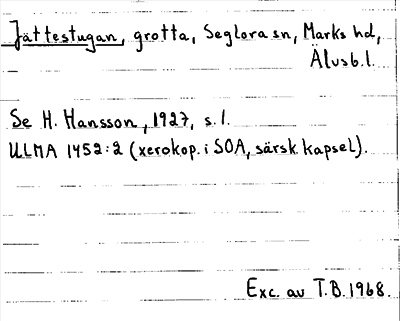 Jättestugan, grotta, Seglora sn, Marks hd,
Älvsb.l.
Se H. Hansson, 1927, s. 1.
ULMA 1452:2 (xerokop. i SOA, särsk. kapsel).
Exc. av T.B. 1968.